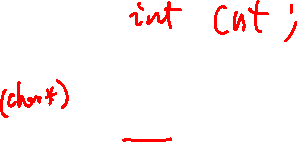 int cnt;
(char*)